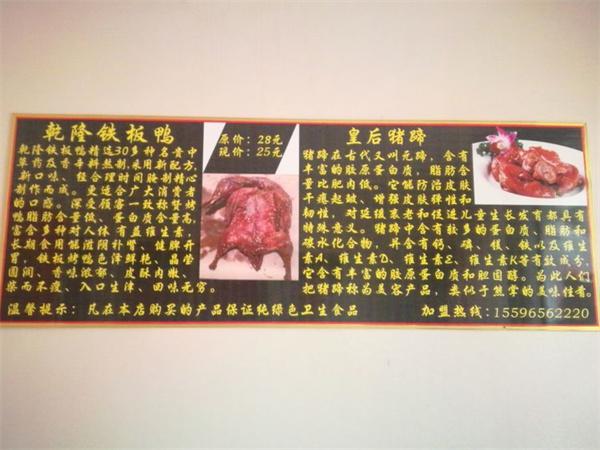 乾隆铁板鸭
原价:28元
现价:25元
乾隆铁板鸭精选30多种名贵中
草药及香辛料熬制,采用新配方,
新口味、经合理时间腌制精心
制作而成。更适合广大消费者
的口感。深受顾客一致称赞烤
鸭脂肪含量低、蛋白质含量高,
富含多种对人体有益维生素,
长期食用能滋阴补肾、健脾开
胃,铁板烤鸭色泽鲜艳、晶莹
圆润、香味浓郁、皮酥肉嫩、
柴而不瘦、入口生津、回味无穷。
皇后猪蹄
猪蹄在古代又叫元蹄,含有
丰富的胶原蛋白质,脂肪含
量比肥肉低。它能防治皮肤
干瘪起皱、增强皮肤弹性和
韧性,对延缓衰老和促进儿童生长发育都具有
特殊意义。猪蹄中含有较多的蛋白质、脂肪和
碳水化合物,并含有钙、磷、镁、铁以及维生
素A、维生素D、维生素E、维生素K等有效成分,
它含有丰富的胶原蛋白质和胆固醇。为此人们
把猪蹄称为美容产品,类似于熊掌的美味佳肴。
温馨提示:凡在本店购买的产品保证纯绿色卫生食品
加盟热线:15596562220